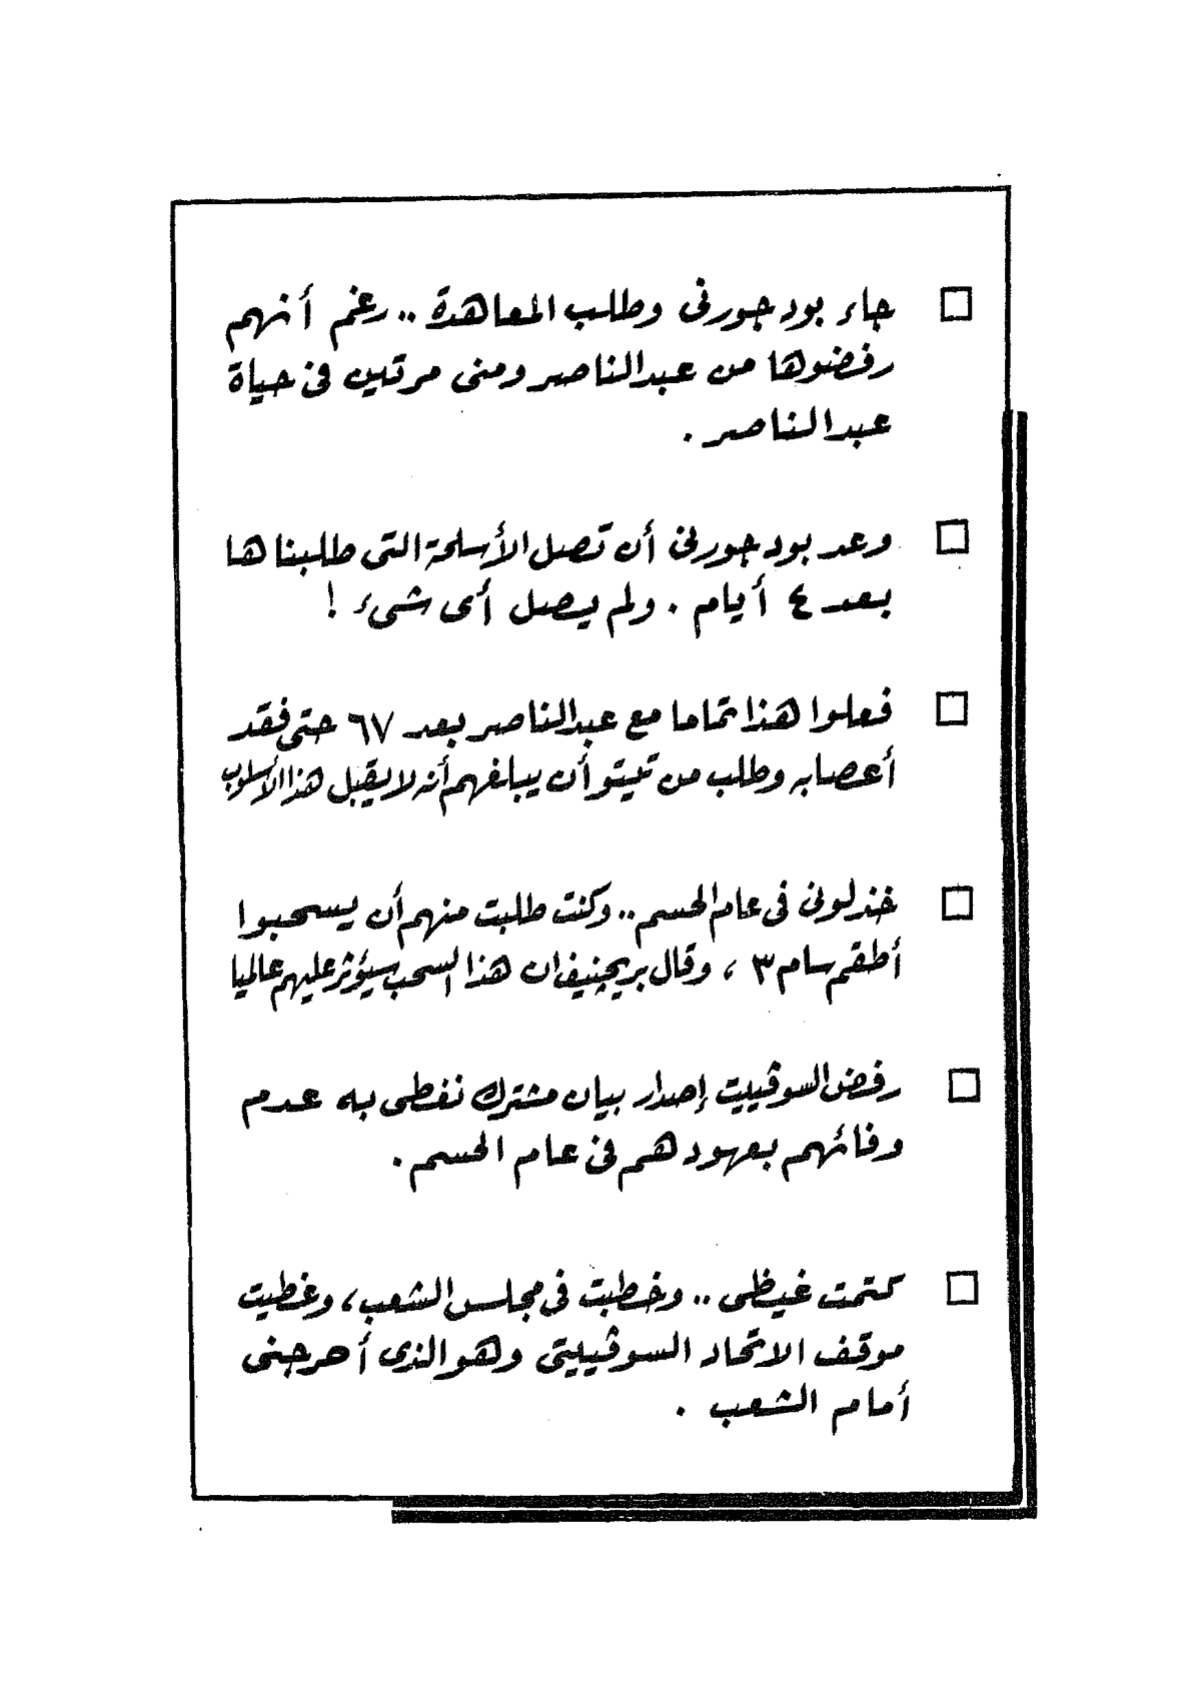 □ جاء بودجورنى وطلب المعاهدة .. رغم أنهم
رفضوها من عبدالناصر ومنى مرتين فى حياة
عبدالناصر .
□ وعد بودجورنى أن تصل الأسلحة التى طلبناها
بعد ٤ أيام . ولم يصل أى شىء !
□ فعلوا هذا تماما مع عبدالناصر بعد ٦٧ حتى فقد
أعصابه وطلب من تيتو أن يبلغهم أنه لا يقبل هذا الأسلوب
□ خذلونى فى عام الحسم .. وكنت طلبت منهم أن يسحبوا
أطقم سام ٣ ، وقال بريجنيف ان هذا السحب سيؤثر عليهم عالميا
□ رفض السوڤييت إصدار بيان مشترك نغطى به عدم
وفائهم بعهودهم فى عام الحسم .
□ كتمت غيظى .. وخطبت فى مجلس الشعب ، وغطيت
موقف الاتحاد السوڤييتى وهو الذى أحرجنى
أمام الشعب .